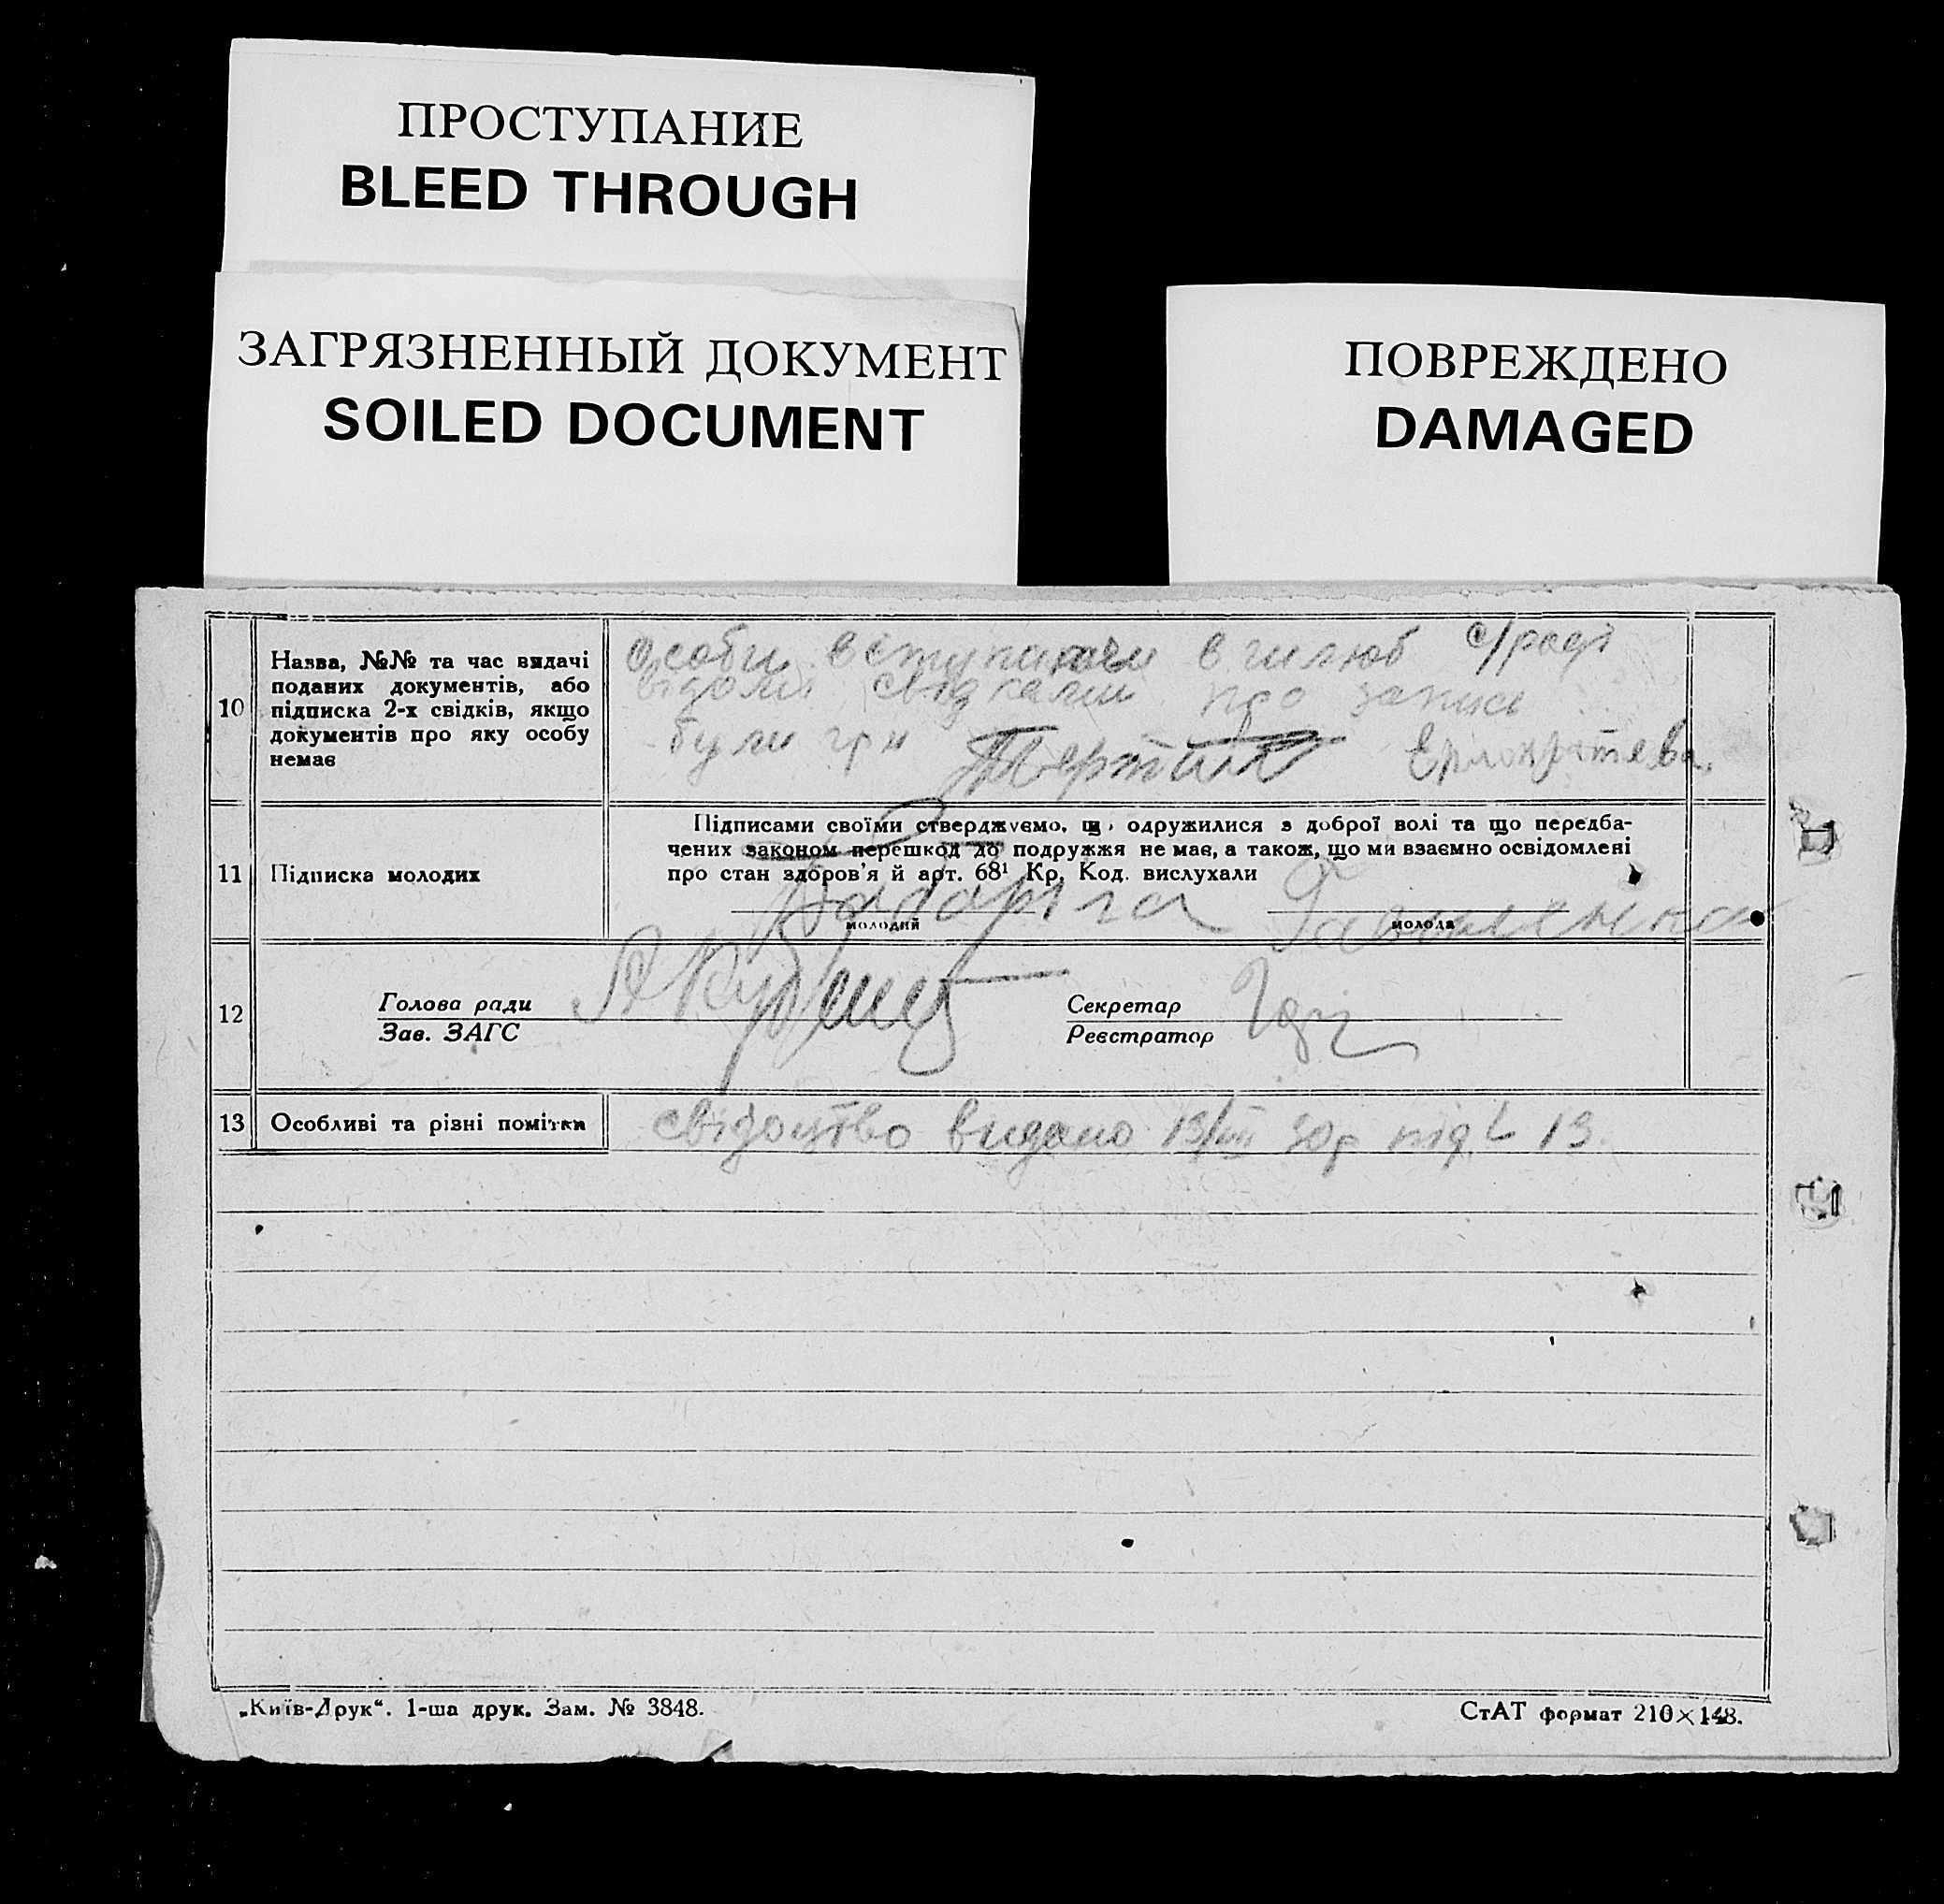 ПРОСТУПАНИЕ
BLEED THROUGH
ЗАГРЯЗНЕННЫЙ ДОКУМЕНТ
SOILED DOCUMENT
ПОВРЕЖДЕНО
DAMAGED
10
Назва, №№ та час видачі
поданих документів, або
підписка 2-х свідків, якщо
документів про яку особу
немає
особи вступаючи в шлюб с/раді
відомі свідками про запис
були гр н Тертишн
11
Підписка молодих
Підписами своїми стверджуємо, що одружилися з доброї волі та що передба-
чених законом перешкод до подружжя не має, а також, що ми взаємно освідомлені
про стан здоров'я й арт. 68¹ Кр. Код. вислухали
молодий
молода
12
Голова ради
Зав. ЗАГС
Секретар
Реєстратор
13
Особливі та різні помітки
свідоцтво видано 13/VIII 30р під № 13
„Київ-Друк“. 1-ша друк. Зам. № 3848.
СтАТ формат 210×148.